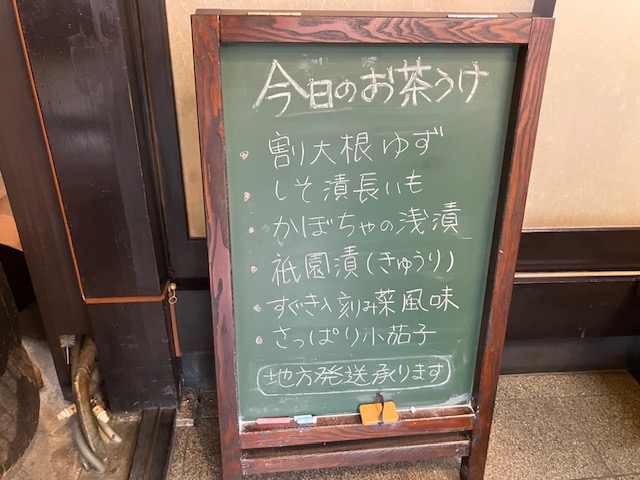 今日のお茶うけ
• 割大根ゆず
• しそ漬長いも
• かぼちゃの浅漬
• 祇園漬(きゅうり)
• すぐき入刻み菜風味
• さっぱり小茄子
地方発送承ります